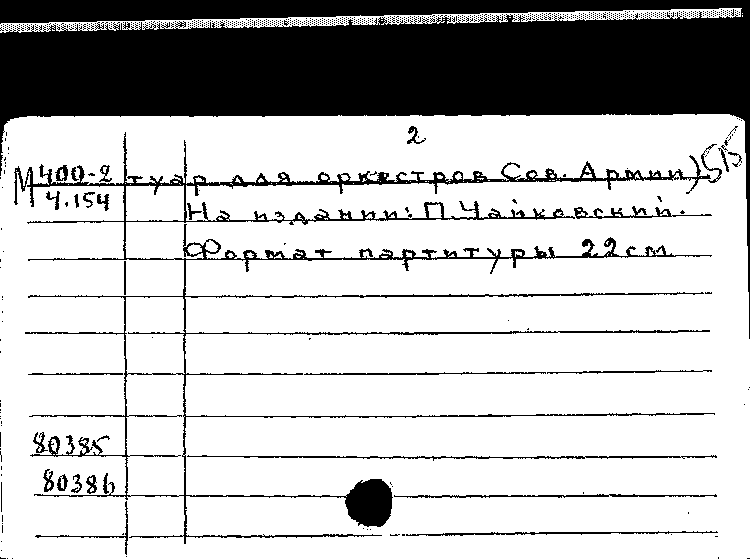 2
М 400-2 туар для оркестров Сов. Армии) 515
4.154
На издании: П. Чайковский.
Формат партитуры 22 см
80385
80386